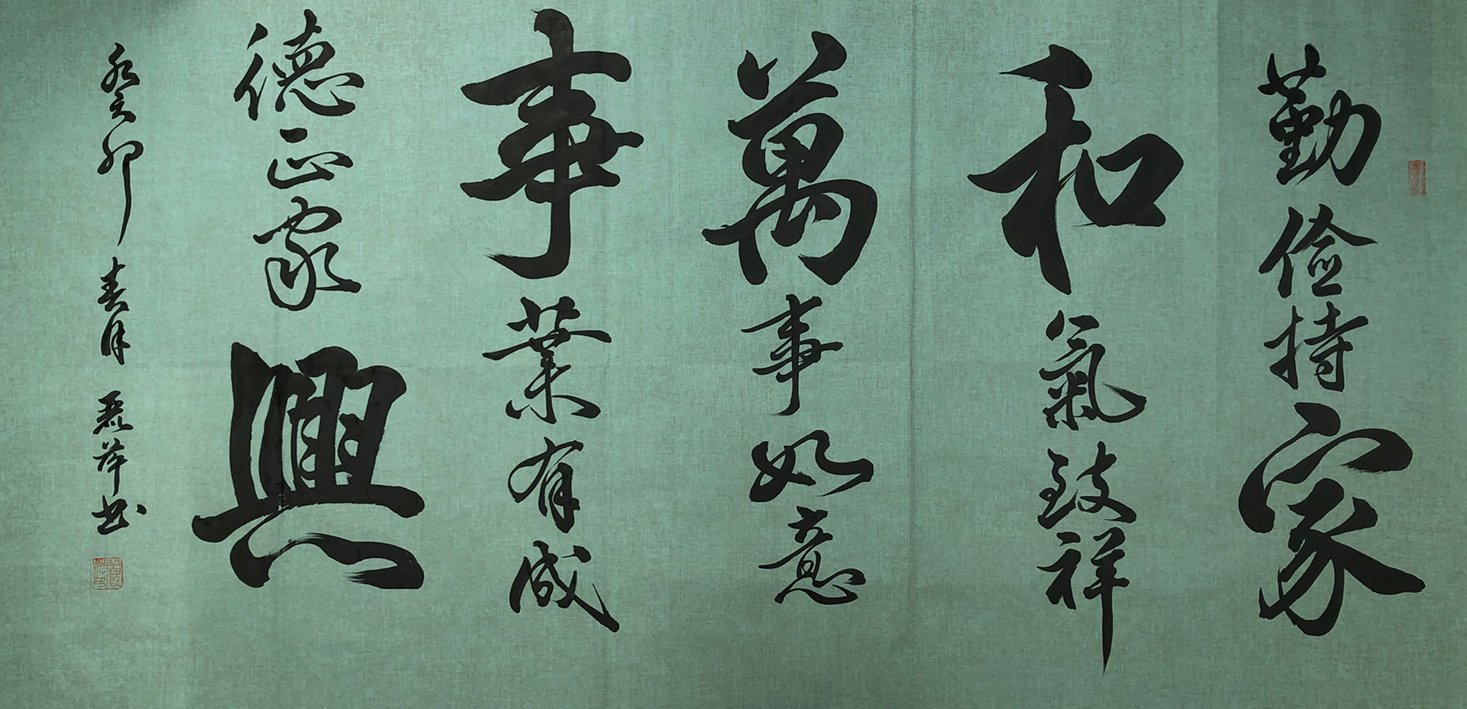 勤儉持家
和氣致祥
萬事如意
事業有成
德正家興
癸卯春月 荔萍书